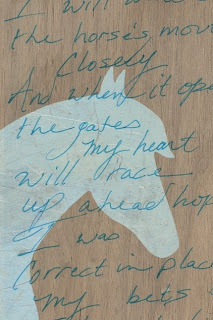 I will w
the horse's mov
Closely
And when it ope
the gates
my heart
will race
up ahead hop
I was
Correct in plac
my bets